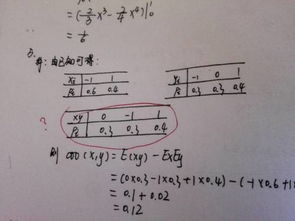 = (2/3 x³ - 2/4 x⁴)|¹₀
= 1/6
3. 解: 由已知可得:
X₁ -1 1
P₁ 0.6 0.4
-1 0 1
0.3 0.3 0.4
?
xy 0 -1 1
0.3 0.3 0.4
则 cov(x,y) = E(xy) - ExEy
= (0×0.3 - 1×0.3 + 1×0.4) - (-1×0.6 + 1×
= 0.1 + 0.02
= 0.12